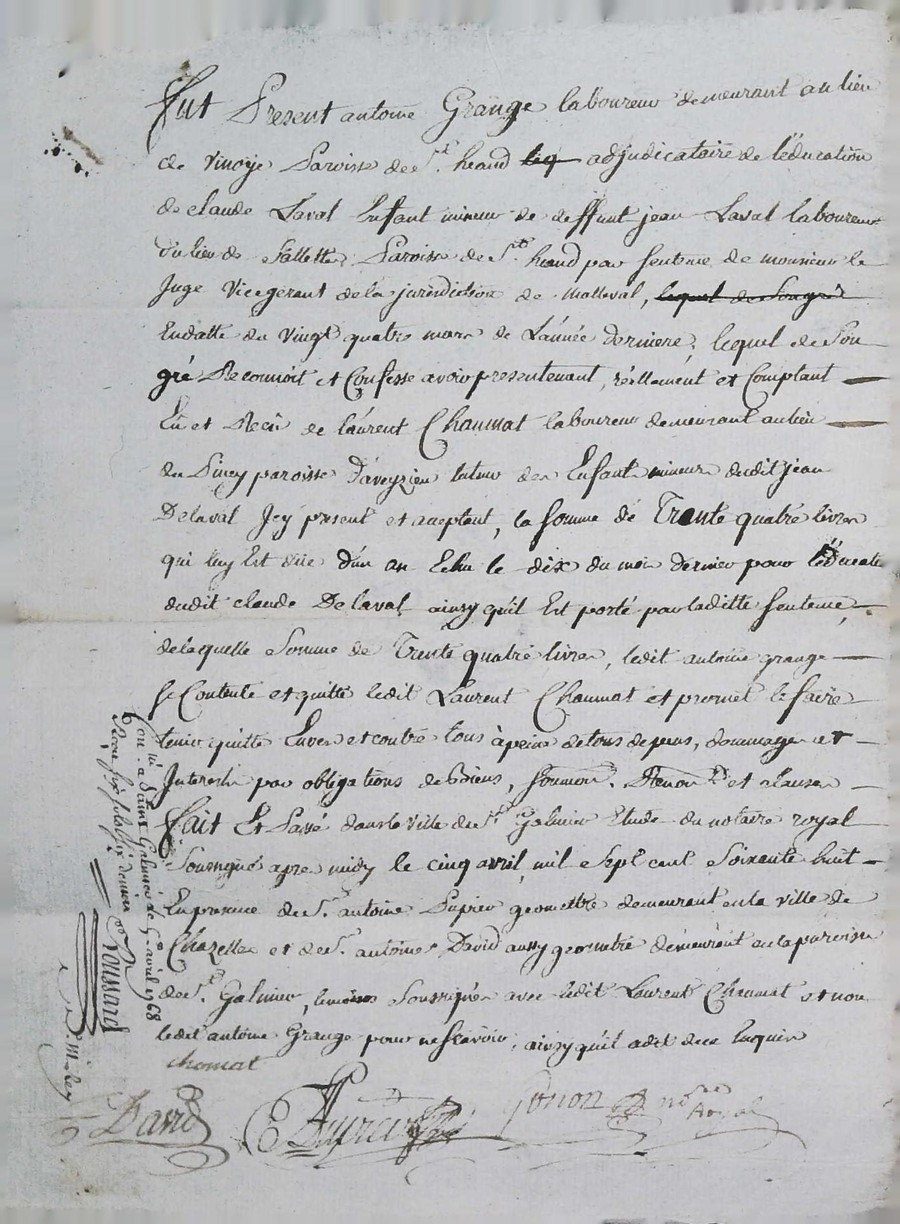 Fut Present antoine Grange laboureur demeurant au lieu
de vinoje Paroisse de St. heand leq adjudicataire de l'éducation
de claude Laval Enfant mineur de deffunt jean Laval laboureur
du lieu de Fallette Paroisse de St. heand par Sentence de monsieur le
Juge Vicegérant de la jurisdiction de malleval, lequel de Songré
En datte du vingt quatre mars de L'année derniere, lequel de Son
gré Reconnoit et Confesse avoir presentement, réellement et Comptant
Eu et Reçû de laurent Chaumat laboureur demeurant au lieu
du Piney paroisse d'aveyzieu tuteur des Enfants mineurs dudit jean
Delaval Jcy present et aceptant, la Somme de Trente quatre livres
qui luy Est due d'un an Echu le dix du mois dernier pour l'Educate
dudit claude Delaval ainsy qu'il Est porté par laditte Sentence,
de laquelle Somme de Trente quatre livres, ledit antoine grange
Se Contente et quitte ledit Laurent Chaumat et promet le faire
tenir quitte Envers et contre tous à peine de tous depens, dommages et
Interests par obligations de Biens, Soumons. Renonons et clauses
Fait Et Passé dans la Ville de St. Galmier Etude du notaire royal
Soussigné apres midy le cinq avril, mil Sept cent Soixante huit
En presence de Sr. antoine Dupier geomettre demeurant en la ville de
Chazelles et de Sr. antoine David aussy geometre demeurant en la paroisse
de St. Galmier, temoins Soussignés avec ledit Laurent Chaumat et non
ledit antoine Grange pour ne Scavoir, ainsy qu'il a dit de ce Enquis
chomat
David Dupier Gonon nore Royal
Conlé à Saint Galmier le 6 avril 1768
Recu six sols six deniers
Roussard